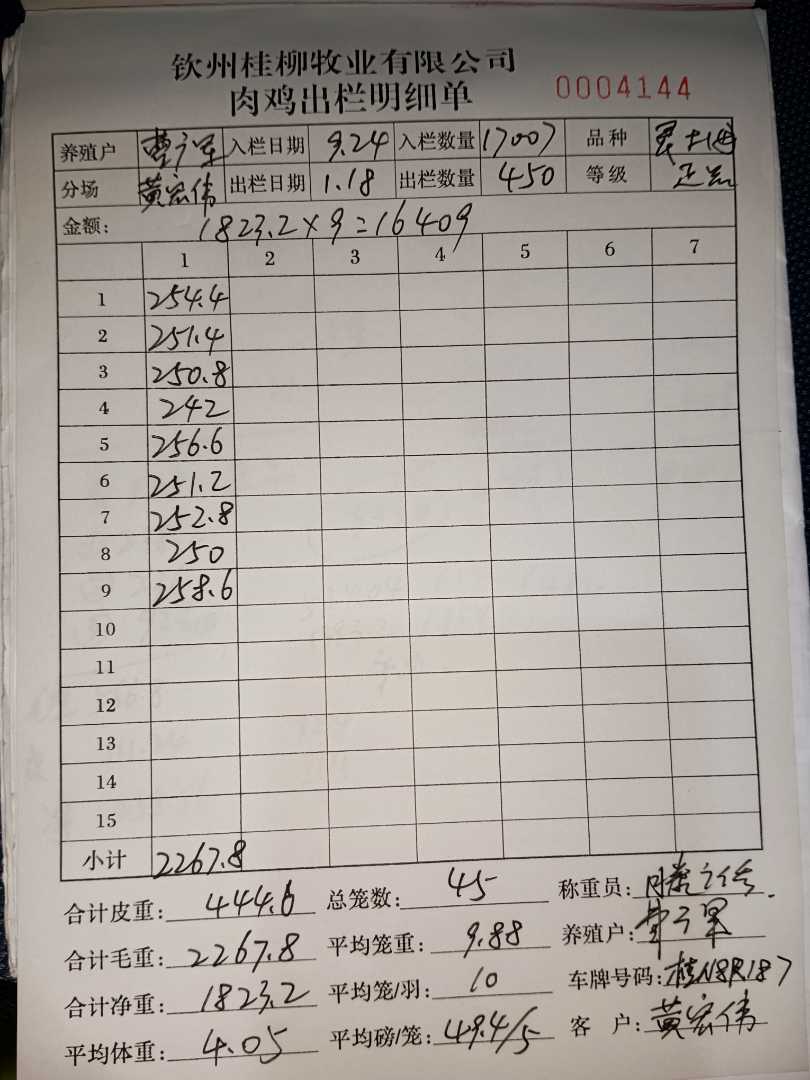 钦州桂柳牧业有限公司
肉鸡出栏明细单 0004144
养殖户 入栏日期 9.24 入栏数量 17007 品种
分场 黄宏伟 出栏日期 1.18 出栏数量 450 等级
金额: 1823.2×9=16409
1 2 3 4 5 6 7
1 254.4
2 251.4
3 250.8
4 242
5 256.6
6 251.2
7 252.8
8 250
9 258.6
10
11
12
13
14
15
小计 2267.8
合计皮重: 444.6 总笼数: 45 称重员:
合计毛重: 2267.8 平均笼重: 9.88 养殖户:
合计净重: 1823.2 平均笼/羽: 10 车牌号码: 桂N8R187
平均体重: 4.05 平均磅/笼: 49.4/5 客户: 黄宏伟